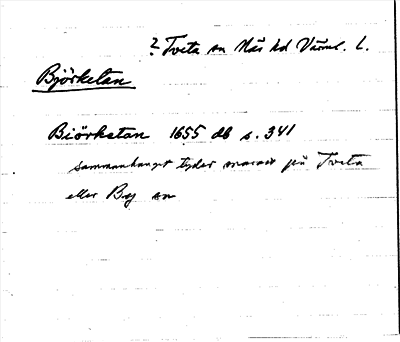 ? Tveta sn Näs hd Värml. l.
Björketan
Biörketan 1655 db s. 341
sammanhanget tyder snarast på Tveta
eller By sn